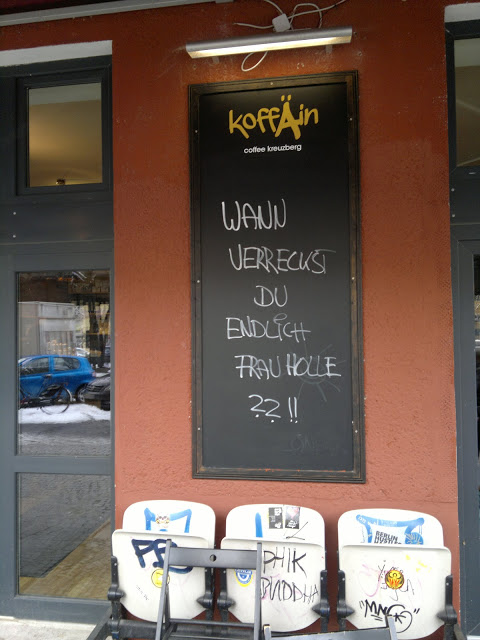 koffÄin
coffee kreuzberg
WANN
VERRECKST
DU
ENDLICH
FRAU HOLLE
??!!
PHIK
BUDDHA
BERLIN